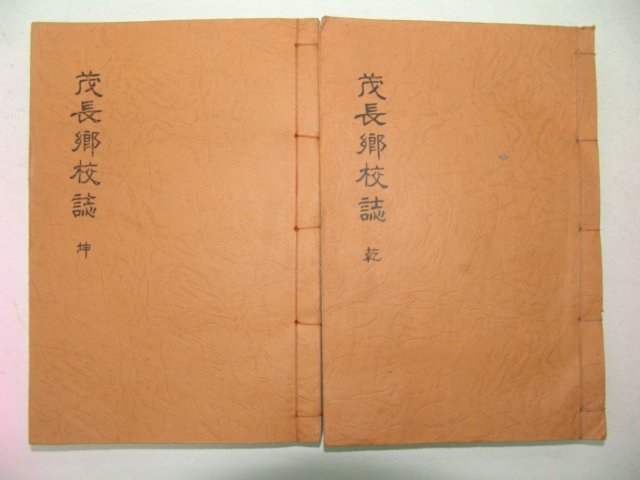 茂長鄕校誌
乾
茂長鄕校誌
坤